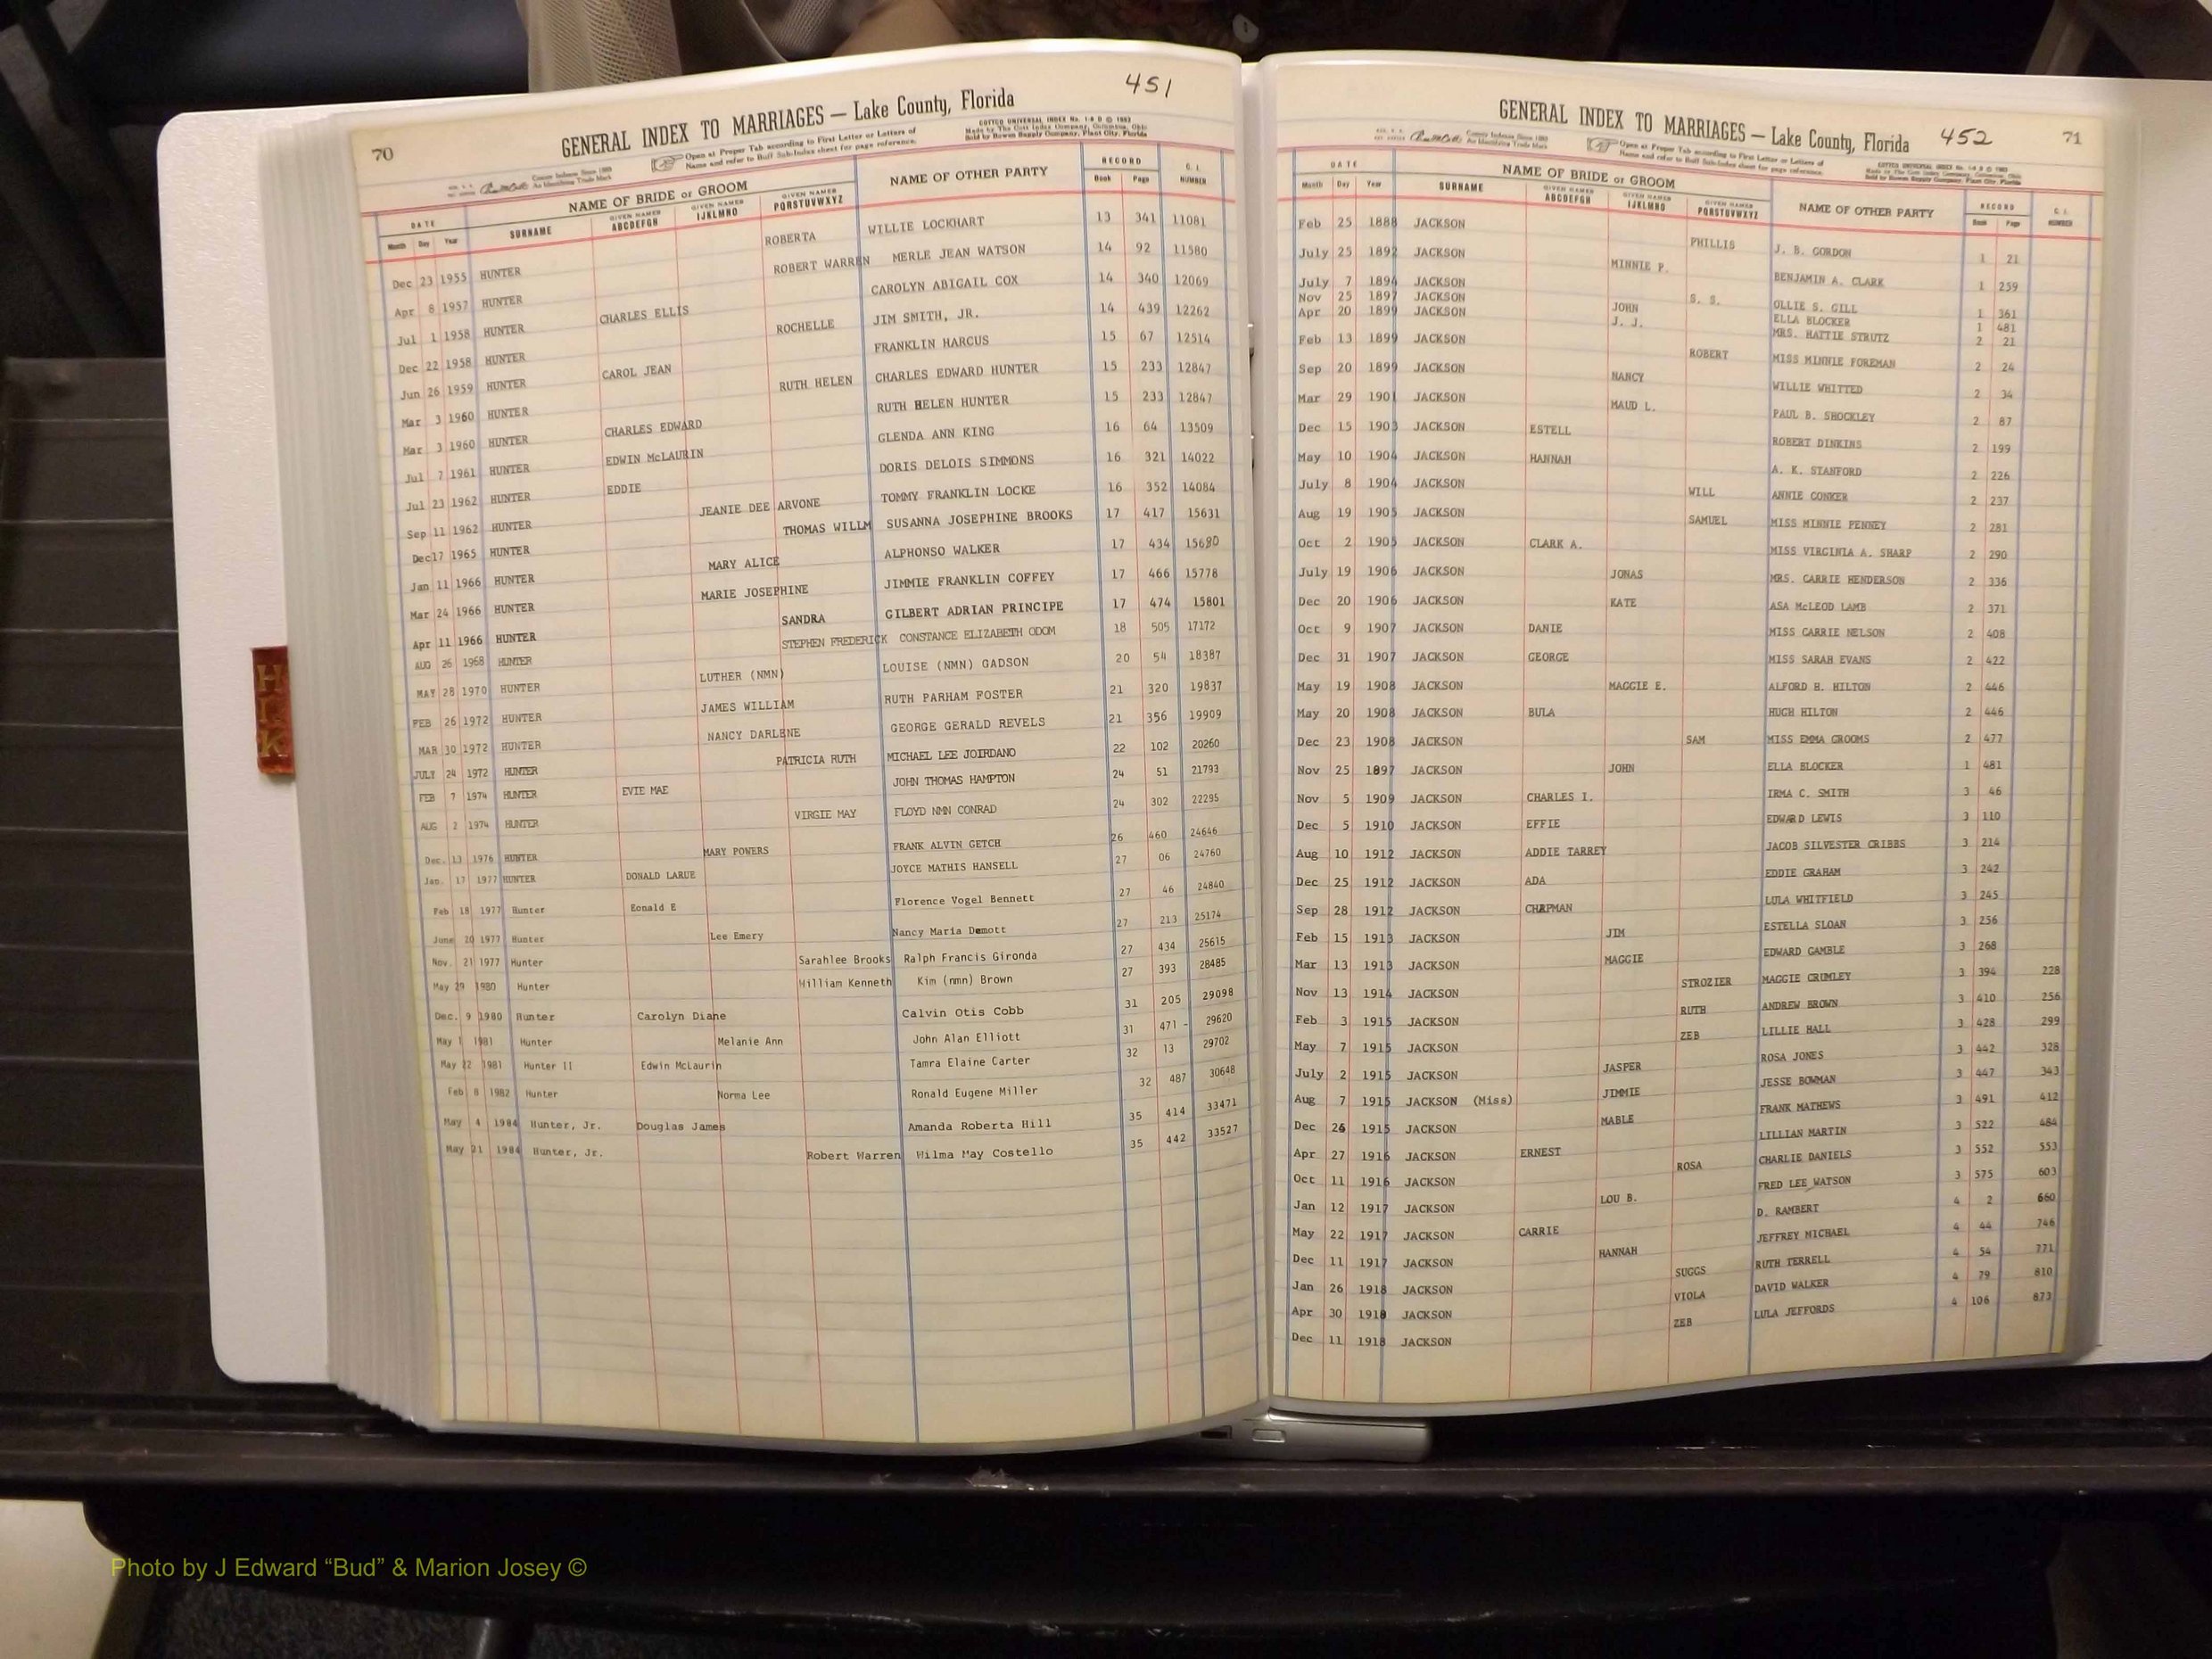 70
451
GENERAL INDEX TO MARRIAGES — Lake County, Florida
Open at Proper Tab according to First Letter or Letters of
Name and refer to Buff Sub-Index sheet for page reference.
DATE NAME OF BRIDE or GROOM NAME OF OTHER PARTY RECORD C. I. NUMBER
Month Day Year SURNAME GIVEN NAMES ABCDEFGH GIVEN NAMES IJKLMNO GIVEN NAMES PQRSTUVWXYZ Book Page
Dec 23 1955 HUNTER ROBERTA WILLIE LOCKHART 13 341 11081
Apr 8 1957 HUNTER ROBERT WARREN MERLE JEAN WATSON 14 92 11580
Jul 1 1958 HUNTER CHARLES ELLIS CAROLYN ABIGAIL COX 14 340 12069
Dec 22 1958 HUNTER ROCHELLE JIM SMITH, JR. 14 439 12262
Jun 26 1959 HUNTER CAROL JEAN FRANKLIN HARCUS 15 67 12514
Mar 3 1960 HUNTER RUTH HELEN CHARLES EDWARD HUNTER 15 233 12847
Mar 3 1960 HUNTER CHARLES EDWARD RUTH HELEN HUNTER 15 233 12847
Jul 7 1961 HUNTER EDWIN McLAURIN GLENDA ANN KING 16 64 13509
Jul 23 1962 HUNTER EDDIE DORIS DELOIS SIMMONS 16 321 14022
Sep 11 1962 HUNTER JEANIE DEE ARVONE TOMMY FRANKLIN LOCKE 16 352 14084
Dec17 1965 HUNTER THOMAS WILLM SUSANNA JOSEPHINE BROOKS 17 417 15631
Jan 11 1966 HUNTER MARY ALICE ALPHONSO WALKER 17 434 15680
Mar 24 1966 HUNTER MARIE JOSEPHINE JIMMIE FRANKLIN COFFEY 17 466 15778
Apr 11 1966 HUNTER SANDRA GILBERT ADRIAN PRINCIPE 17 474 15801
AUG 26 1968 HUNTER STEPHEN FREDERICK CONSTANCE ELIZABETH ODOM 18 505 17172
MAY 28 1970 HUNTER LUTHER (NMN) LOUISE (NMN) GADSON 20 54 18387
FEB 26 1972 HUNTER JAMES WILLIAM RUTH PARHAM FOSTER 21 320 19837
MAR 30 1972 HUNTER NANCY DARLENE GEORGE GERALD REVELS 21 356 19909
JULY 24 1972 HUNTER PATRICIA RUTH MICHAEL LEE JOIRDANO 22 102 20260
FEB 7 1974 HUNTER EVIE MAE JOHN THOMAS HAMPTON 24 51 21793
AUG 2 1974 HUNTER VIRGIE MAY FLOYD NMN CONRAD 24 302 22295
Dec. 13 1976 HUNTER MARY POWERS FRANK ALVIN GETCH 26 460 24646
Jan. 17 1977 HUNTER DONALD LARUE JOYCE MATHIS HANSELL 27 06 24760
Feb 18 1977 Hunter Eonald E Florence Vogel Bennett 27 46 24840
June 20 1977 Hunter Lee Emery Nancy Maria Demott 27 213 25174
Nov. 21 1977 Hunter Sarahlee Brooks Ralph Francis Gironda 27 434 25615
May 29 1980 Hunter William Kenneth Kim (nmn) Brown 27 393 28485
Dec. 9 1980 Hunter Carolyn Diane Calvin Otis Cobb 31 205 29098
May 1 1981 Hunter Melanie Ann John Alan Elliott 31 471 - 29620
May 22 1981 Hunter II Edwin McLaurin Tamra Elaine Carter 32 13 29702
Feb 8 1982 Hunter Norma Lee Ronald Eugene Miller 32 487 30648
May 4 1984 Hunter, Jr. Douglas James Amanda Roberta Hill 35 414 33471
May 21 1984 Hunter, Jr. Robert Warren Wilma May Costello 35 442 33527
HIJK
GENERAL INDEX TO MARRIAGES — Lake County, Florida
452
71
Open at Proper Tab according to First Letter or Letters of
Name and refer to Buff Sub-Index sheet for page reference.
DATE NAME OF BRIDE or GROOM NAME OF OTHER PARTY RECORD C. I. NUMBER
Month Day Year SURNAME GIVEN NAMES ABCDEFGH GIVEN NAMES IJKLMNO GIVEN NAMES PQRSTUVWXYZ Book Page
Feb 25 1888 JACKSON PHILLIS J. B. GORDON 1 21
July 25 1892 JACKSON MINNIE P. BENJAMIN A. CLARK 1 259
July 7 1894 JACKSON S. S. OLLIE S. GILL 1 361
Nov 25 1897 JACKSON JOHN ELLA BLOCKER 1 481
Apr 20 1899 JACKSON J. J. MRS. HATTIE STRUTZ 2 21
Feb 13 1899 JACKSON ROBERT MISS MINNIE FOREMAN 2 24
Sep 20 1899 JACKSON NANCY WILLIE WHITTED 2 34
Mar 29 1901 JACKSON MAUD L. PAUL B. SHOCKLEY 2 87
Dec 15 1903 JACKSON ESTELL ROBERT DINKINS 2 199
May 10 1904 JACKSON HANNAH A. K. STANFORD 2 226
July 8 1904 JACKSON WILL ANNIE CONKER 2 237
Aug 19 1905 JACKSON SAMUEL MISS MINNIE PENNEY 2 281
Oct 2 1905 JACKSON CLARK A. MISS VIRGINIA A. SHARP 2 290
July 19 1906 JACKSON JONAS MRS. CARRIE HENDERSON 2 336
Dec 20 1906 JACKSON KATE ASA McLEOD LAMB 2 371
Oct 9 1907 JACKSON DANIE MISS CARRIE NELSON 2 408
Dec 31 1907 JACKSON GEORGE MISS SARAH EVANS 2 422
May 19 1908 JACKSON MAGGIE E. ALFORD H. HILTON 2 446
May 20 1908 JACKSON BULA HUGH HILTON 2 446
Dec 23 1908 JACKSON SAM MISS EMMA GROOMS 2 477
Nov 25 1897 JACKSON JOHN ELLA BLOCKER 1 481
Nov 5 1909 JACKSON CHARLES I. IRMA C. SMITH 3 46
Dec 5 1910 JACKSON EFFIE EDWARD LEWIS 3 110
Aug 10 1912 JACKSON ADDIE TARREY JACOB SILVESTER CRIBBS 3 214
Dec 25 1912 JACKSON ADA EDDIE GRAHAM 3 242
Sep 28 1912 JACKSON CHAPMAN LULA WHITFIELD 3 245
Feb 15 1913 JACKSON JIM ESTELLA SLOAN 3 256
Mar 13 1913 JACKSON MAGGIE EDWARD GAMBLE 3 268
Nov 13 1914 JACKSON STROZIER MAGGIE CRUMLEY 3 394 228
Feb 3 1915 JACKSON RUTH ANDREW BROWN 3 410 256
May 7 1915 JACKSON ZEB LILLIE HALL 3 428 299
July 2 1915 JACKSON JASPER ROSA JONES 3 442 328
Aug 7 1915 JACKSON (Miss) JIMMIE JESSE BOWMAN 3 447 343
Dec 26 1915 JACKSON MABLE FRANK MATHEWS 3 491 412
Apr 27 1916 JACKSON ERNEST LILLIAN MARTIN 3 522 484
Oct 11 1916 JACKSON ROSA CHARLIE DANIELS 3 552 553
Jan 12 1917 JACKSON LOU B. FRED LEE WATSON 3 575 603
May 22 1917 JACKSON CARRIE D. RAMBERT 4 2 660
Dec 11 1917 JACKSON HANNAH JEFFREY MICHAEL 4 44 746
Jan 26 1918 JACKSON SUGGS RUTH TERRELL 4 54 771
Apr 30 1918 JACKSON VIOLA DAVID WALKER 4 79 810
Dec 11 1918 JACKSON ZEB LULA JEFFORDS 4 106 873
Photo by J Edward “Bud” & Marion Josey ©